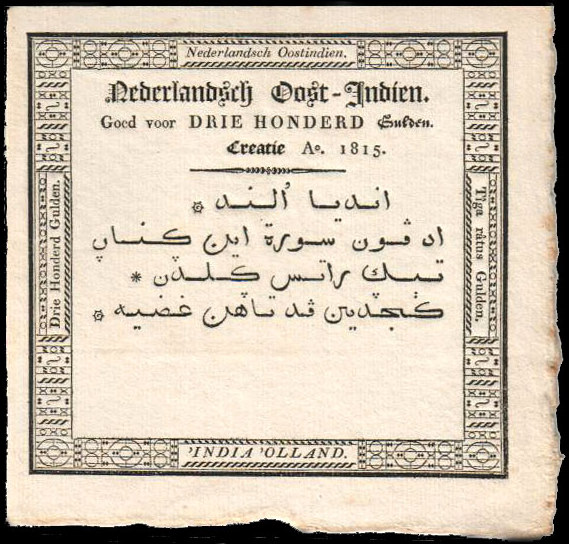 Nederlandsch Oostindien.
Nederlandsch Oost-Indien.
Goed voor DRIE HONDERD Gulden.
Creatie Aº. 1815.
انديا ألند
ان ڤون سورة اين
تيݢ راتس ݢلدن
ڤد تاهن
Drie Honderd Gulden.
Tiga râtus Gulden.
'INDIA 'OLLAND.